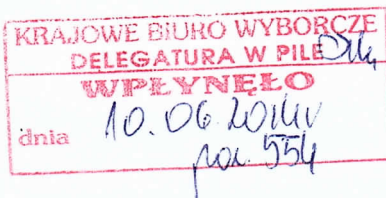 KRAJOWE BIURO WYBORCZE
DELEGATURA W PILE
WPŁYNĘŁO
dnia 10.06.2014r
poz. 554